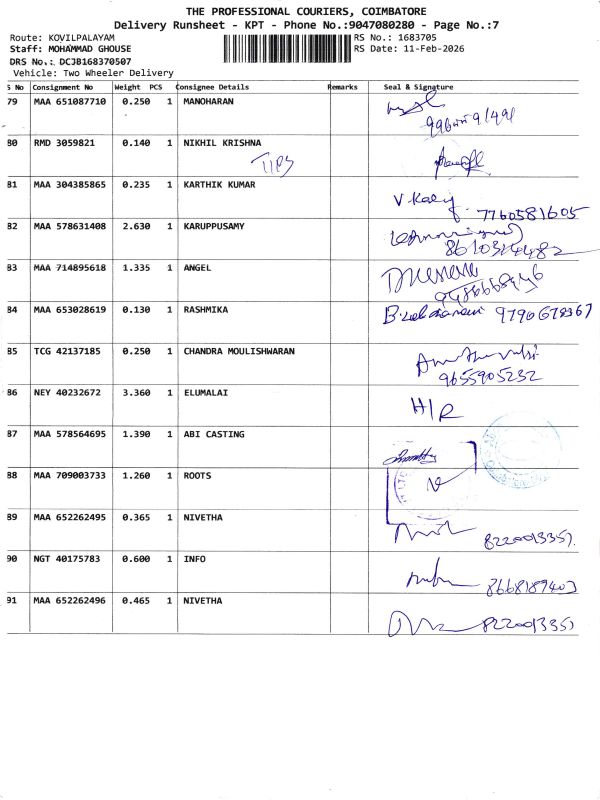 THE PROFESSIONAL COURIERS, COIMBATORE
Delivery Runsheet - KPT - Phone No.:9047080280 - Page No.:7
Route: KOVILPALAYAM
RS No.: 1683705
Staff: MOHAMMAD GHOUSE
RS Date: 11-Feb-2026
DRS No.: DCJB168370507
Vehicle: Two Wheeler Delivery
S No Consignment No Weight PCS Consignee Details Remarks Seal & Signature
79 MAA 651087710 0.250 1 MANOHARAN
80 RMD 3059821 0.140 1 NIKHIL KRISHNA
TIPS
81 MAA 304385865 0.235 1 KARTHIK KUMAR
7760581605
82 MAA 578631408 2.630 1 KARUPPUSAMY
83 MAA 714895618 1.335 1 ANGEL
84 MAA 653028619 0.130 1 RASHMIKA
85 TCG 42137185 0.250 1 CHANDRA MOULISHWARAN
9655905232
86 NEY 40232672 3.360 1 ELUMALAI
H/R
87 MAA 578564695 1.390 1 ABI CASTING
88 MAA 709003733 1.260 1 ROOTS
89 MAA 652262495 0.365 1 NIVETHA
90 NGT 40175783 0.600 1 INFO
91 MAA 652262496 0.465 1 NIVETHA